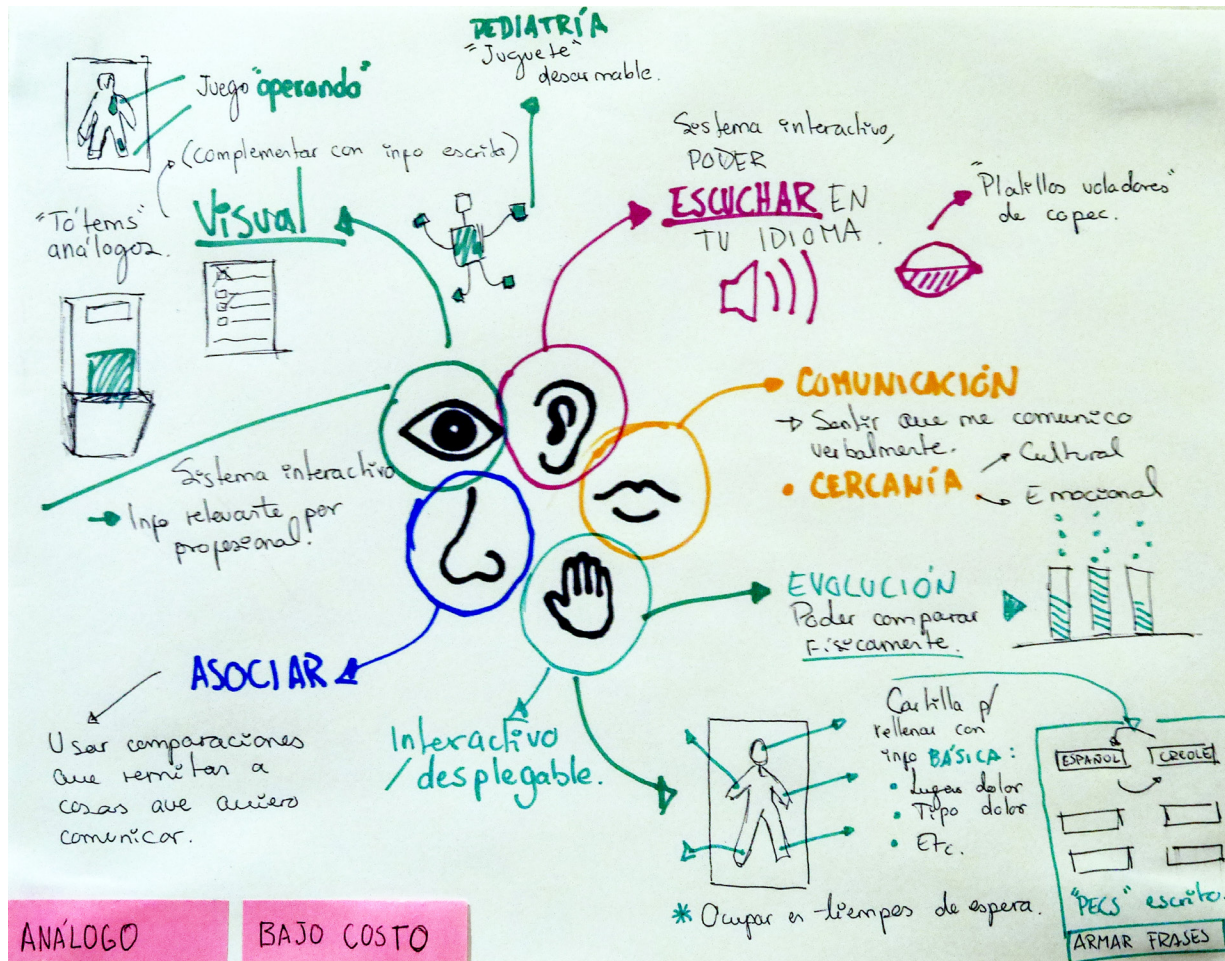 PEDIATRÍA
"Juguete"
desarmable.
Juego "operando"
(complementar con info escrita)
Visual
"Tótems"
análogos.
Sistema interactivo,
PODER
ESCUCHAR EN
TU IDIOMA.
"Platillos voladores"
de copec.
COMUNICACIÓN
→ Sentir que me comunico
verbalmente.
• CERCANÍA
Cultural
Emocional
Sistema interactivo
→ Info relevante por
profesional.
EVOLUCIÓN
Poder comparar
Físicamente.
ASOCIAR
Usar comparaciones
que remitan a
cosas que quiero
comunicar.
Interactivo
/desplegable.
Cartilla p/
rellenar con
info BÁSICA:
• Lugar dolor
• Tipo dolor
• Etc.
* Ocupar en tiempos de espera.
ESPAÑOL
CREOLE
"PECS" escrito.
ARMAR FRASES
ANÁLOGO
BAJO COSTO